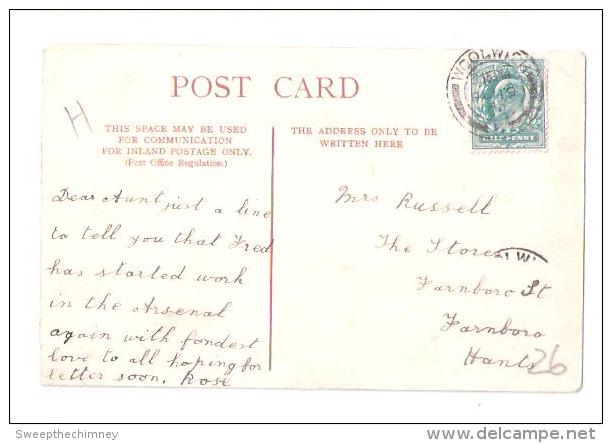 POST CARD
WOOLWICH
HALF PENNY
H
THIS SPACE MAY BE USED
FOR COMMUNICATION
FOR INLAND POSTAGE ONLY.
(Post Office Regulation.)
THE ADDRESS ONLY TO BE
WRITTEN HERE
Dear Aunt just a line
to tell you that Fred
has started work
in the Arsenal
again with fondest
love to all hoping for
letter soon. Rose
Mrs Russell
The Stores
Farnboro St
Farnboro
Hants
26
Sweepthechimney
www.delcampe.net